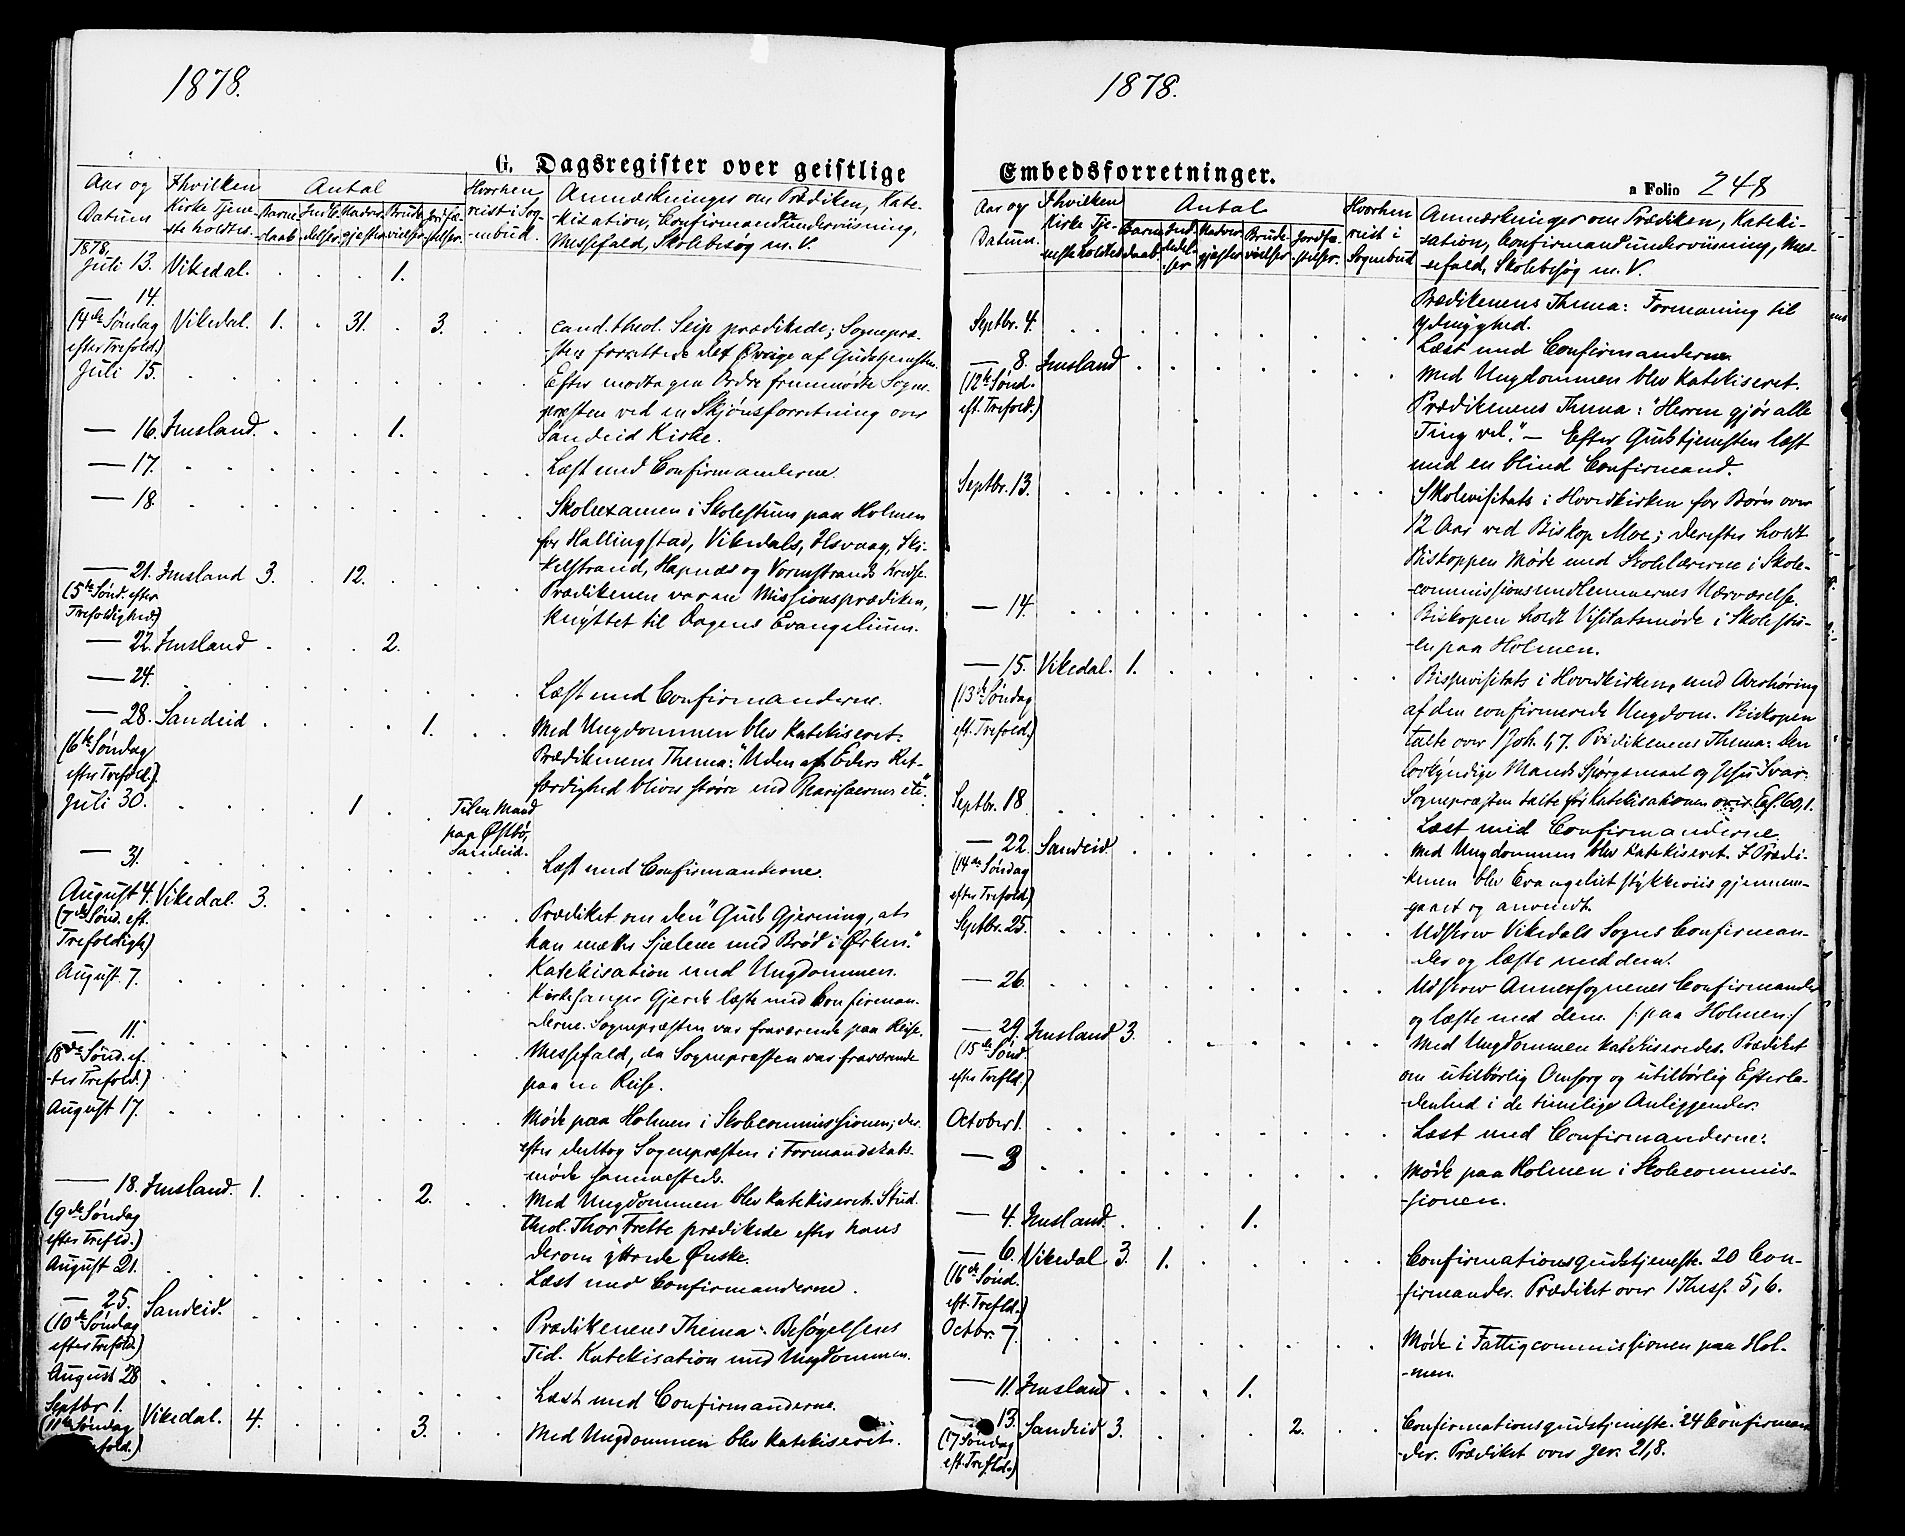 1878.
G. Dagsregister over geistlige
Aar og Datum
I hvilken Kirke Tjeneste holdtes.
Antal
Barnedaab.
Indl. delser.
Nadvergjester
Brudevielser.
Jordfæstelser.
Hvorhen reist i Sognebud.
Anmærkninger om Prædiken, Kate-
-kisation, Confirmandunderviisning,
Messefald, Skolebesøg m. V.
1878.
Juli 13. Vikedal. . . . 1.
— 14.
(4de Søndag Vikedal. 1. . 31. . 3. . . cand. theol. Seip prædikede; Sognepræ-
efter Trefold.) -sten forrettede det Øvrige af Gudstjenesten.
Juli 15. . . . . . . . Efter modtagen Ordre fremmødte Sogne-
-præsten ved en Skjønsforretning over
— 16. Imsland. . . . 1. Sandeid Kirke.
— 17. . . . . . . . Læst med Confirmanderne.
— 18. . . . . . . . Skoleexamen i Skolestuen paa Holmen
for Hallingstad, Vikedals, Ilsvaag, Ski-
— 21. Imsland 3. . 12. . . . -kelstrand, Hapnæs og Vormstrands Kredse.
(5te Sønd. efter Prædikenen var en Missionsprædiken,
Trefoldighed) knyttet til Dagens Evangelium.
— 22. Imsland . . . 2.
— 24. . . . . . . . Læst med Confirmanderne.
— 28. Sandeid . . . . 1. . . Med Ungdommen blev katekiseret.
(6te Søndag Prædikenens Thema: "Uden at Eders Ret-
efter Trefold.) færdighed bliver større end Pharisæernes etc."
Juli 30. . . . 1 . . Til en Mand
paa Østbø,
Sandeid.
— 31. . . . . . . . Læst med Confirmanderne.
August 4. Vikedal. 3. . . . . . . Prædiket om den "Guds Gjerning, at
(7de Sønd. eft. han mætter Sjælene med Brød i Ørken."
Trefoldigh.) Katekisation med Ungdommen.
August 7. . . . . . . . Kirkesanger Gjerde læste med Confirman-
-derne. Sognepræsten var fraværende paa Reise.
— 11. . . . . . . . Messefald, da Sognepræsten var fraværende
(8de Sønd. ef- paa en Reise.
-ter Trefold.)
August 17. . . . . . . . Møde paa Holmen i Skolecommissionen; der-
efter deltog Sognepræsten i Formandskabs-
møde sammesteds.
— 18. Imsland. 1. . . . 2. . . Med Ungdommen blev katekiseret. Stud.
(9de Søndag theol. Thor Frette prædikede efter hans
efter Trefld.) derom yttrede Ønske.
August 21. . . . . . . . Læst med Confirmanderne.
— 25. Sandeid. . . . . . . Prædikenens Thema: Besøgelsens
(10de Søndag Tid. Katekisation med Ungdommen.
efter Trefold.)
August 28 . . . . . . . Læst med Confirmanderne.
Septbr 1. Vikedal. 4. . . . 3. . . Med Ungdommen blev katekiseret.
(11te Søndag
1878.
Embedsforretninger.
a Folio 248
Aar og Datum.
I hvilken Kirke Tjeneste holdtes
Antal
Barnedaab.
Nadvergjester
Brudevielser
Jordfæstelser.
Hvorhen reist i Sognebud
Anmærkninger om Prædiken, Kateki-
-sation, Confirmandunderviisning, Mes-
-sefald, Skolebesøg m. V.
Prædikenens Thema: Formaning til
Septbr. 4. . . . . . . . Ydmyghed.
Læst med Confirmanderne.
— 8. Imsland . . . . . . . Med Ungdommen blev katekiseret.
(12te Sønd. Prædikenens Thema: "Herren gjør alle
eft. Trefold.) Ting vel." – Efter Gudstjenesten læst
med en blind Confirmand.
Septbr. 13. . . . . . . . Skolevisitats i Hovedkirken for Børn over
12 Aar ved Biskop Moe; derefter holdt
Biskoppen Møde med Skolelærerne i Skole-
-commissionsmedlemmernes Nærværelse.
— 14. . . . . . . . Biskopen holdt Visitatsmøde i Skolestu-
-en paa Holmen.
— 15. Vikedal. 1. . . . . . . Bispevisitats i Hovedkirken, med Overhøring
(13de Søndag af den confirmerede Ungdom. Biskopen
eft. Trefold.) talte over 1 Joh. 1,7. Prædikenens Thema: Den
lovkyndige Mands Spørgsmaal og Jesu Svar.
Septbr. 18 . . . . . . . Sognepræsten talte før Katekisationen over Es. 60,1.
Læst med Confirmanderne.
— 22. Sandeid. . . . . . . Med Ungdommen blev katekiseret. I Prædi-
(14de Søndag -kenen blev Evangeliet stykkeviis gjennem-
efter Trefold.) -gaaet og anvendt.
Septbr. 25. . . . . . . . Udskrev Vikedals Sogns Confirman-
-der og læste med dem.
— 26. . . . . . . . Udskrev Annexsognenes Confirmander
og læste med dem. /: paa Holmen :/
— 29. Imsland 3. . . . . . . Med Ungdommen katekiseredes. Prædiket
(15de Sønd. om utilbørlig Omsorg og utilbørlig Efterla-
efter Trefld.) -denhed i de timelige Anliggender.
October 1. . . . . . . . Læst med Confirmanderne.
— 3 . . . . . . . Møde paa Holmen i Skolecommis-
-sionen.
— 4. Imsland. . . . 1.
— 6. Vikedal 3. 1. . . . . . Confirmationsgudstjeneste. 20 Con-
(16de Sønd. -firmander. Prædiket over 1 Thess. 5,6.
eft. Trefld.)
Octbr. 7. . . . . . . . Møde i Fattigcommissionen paa Hol-
-men.
— 11. Imsland . . . 1.
— 13. Sandeid 3. . . . 2. . . Confirmationsgudstjeneste. 24 Confirman-
(17 Søndag -der. Prædiket over Jer. 21,8.
eft. Trefld.)